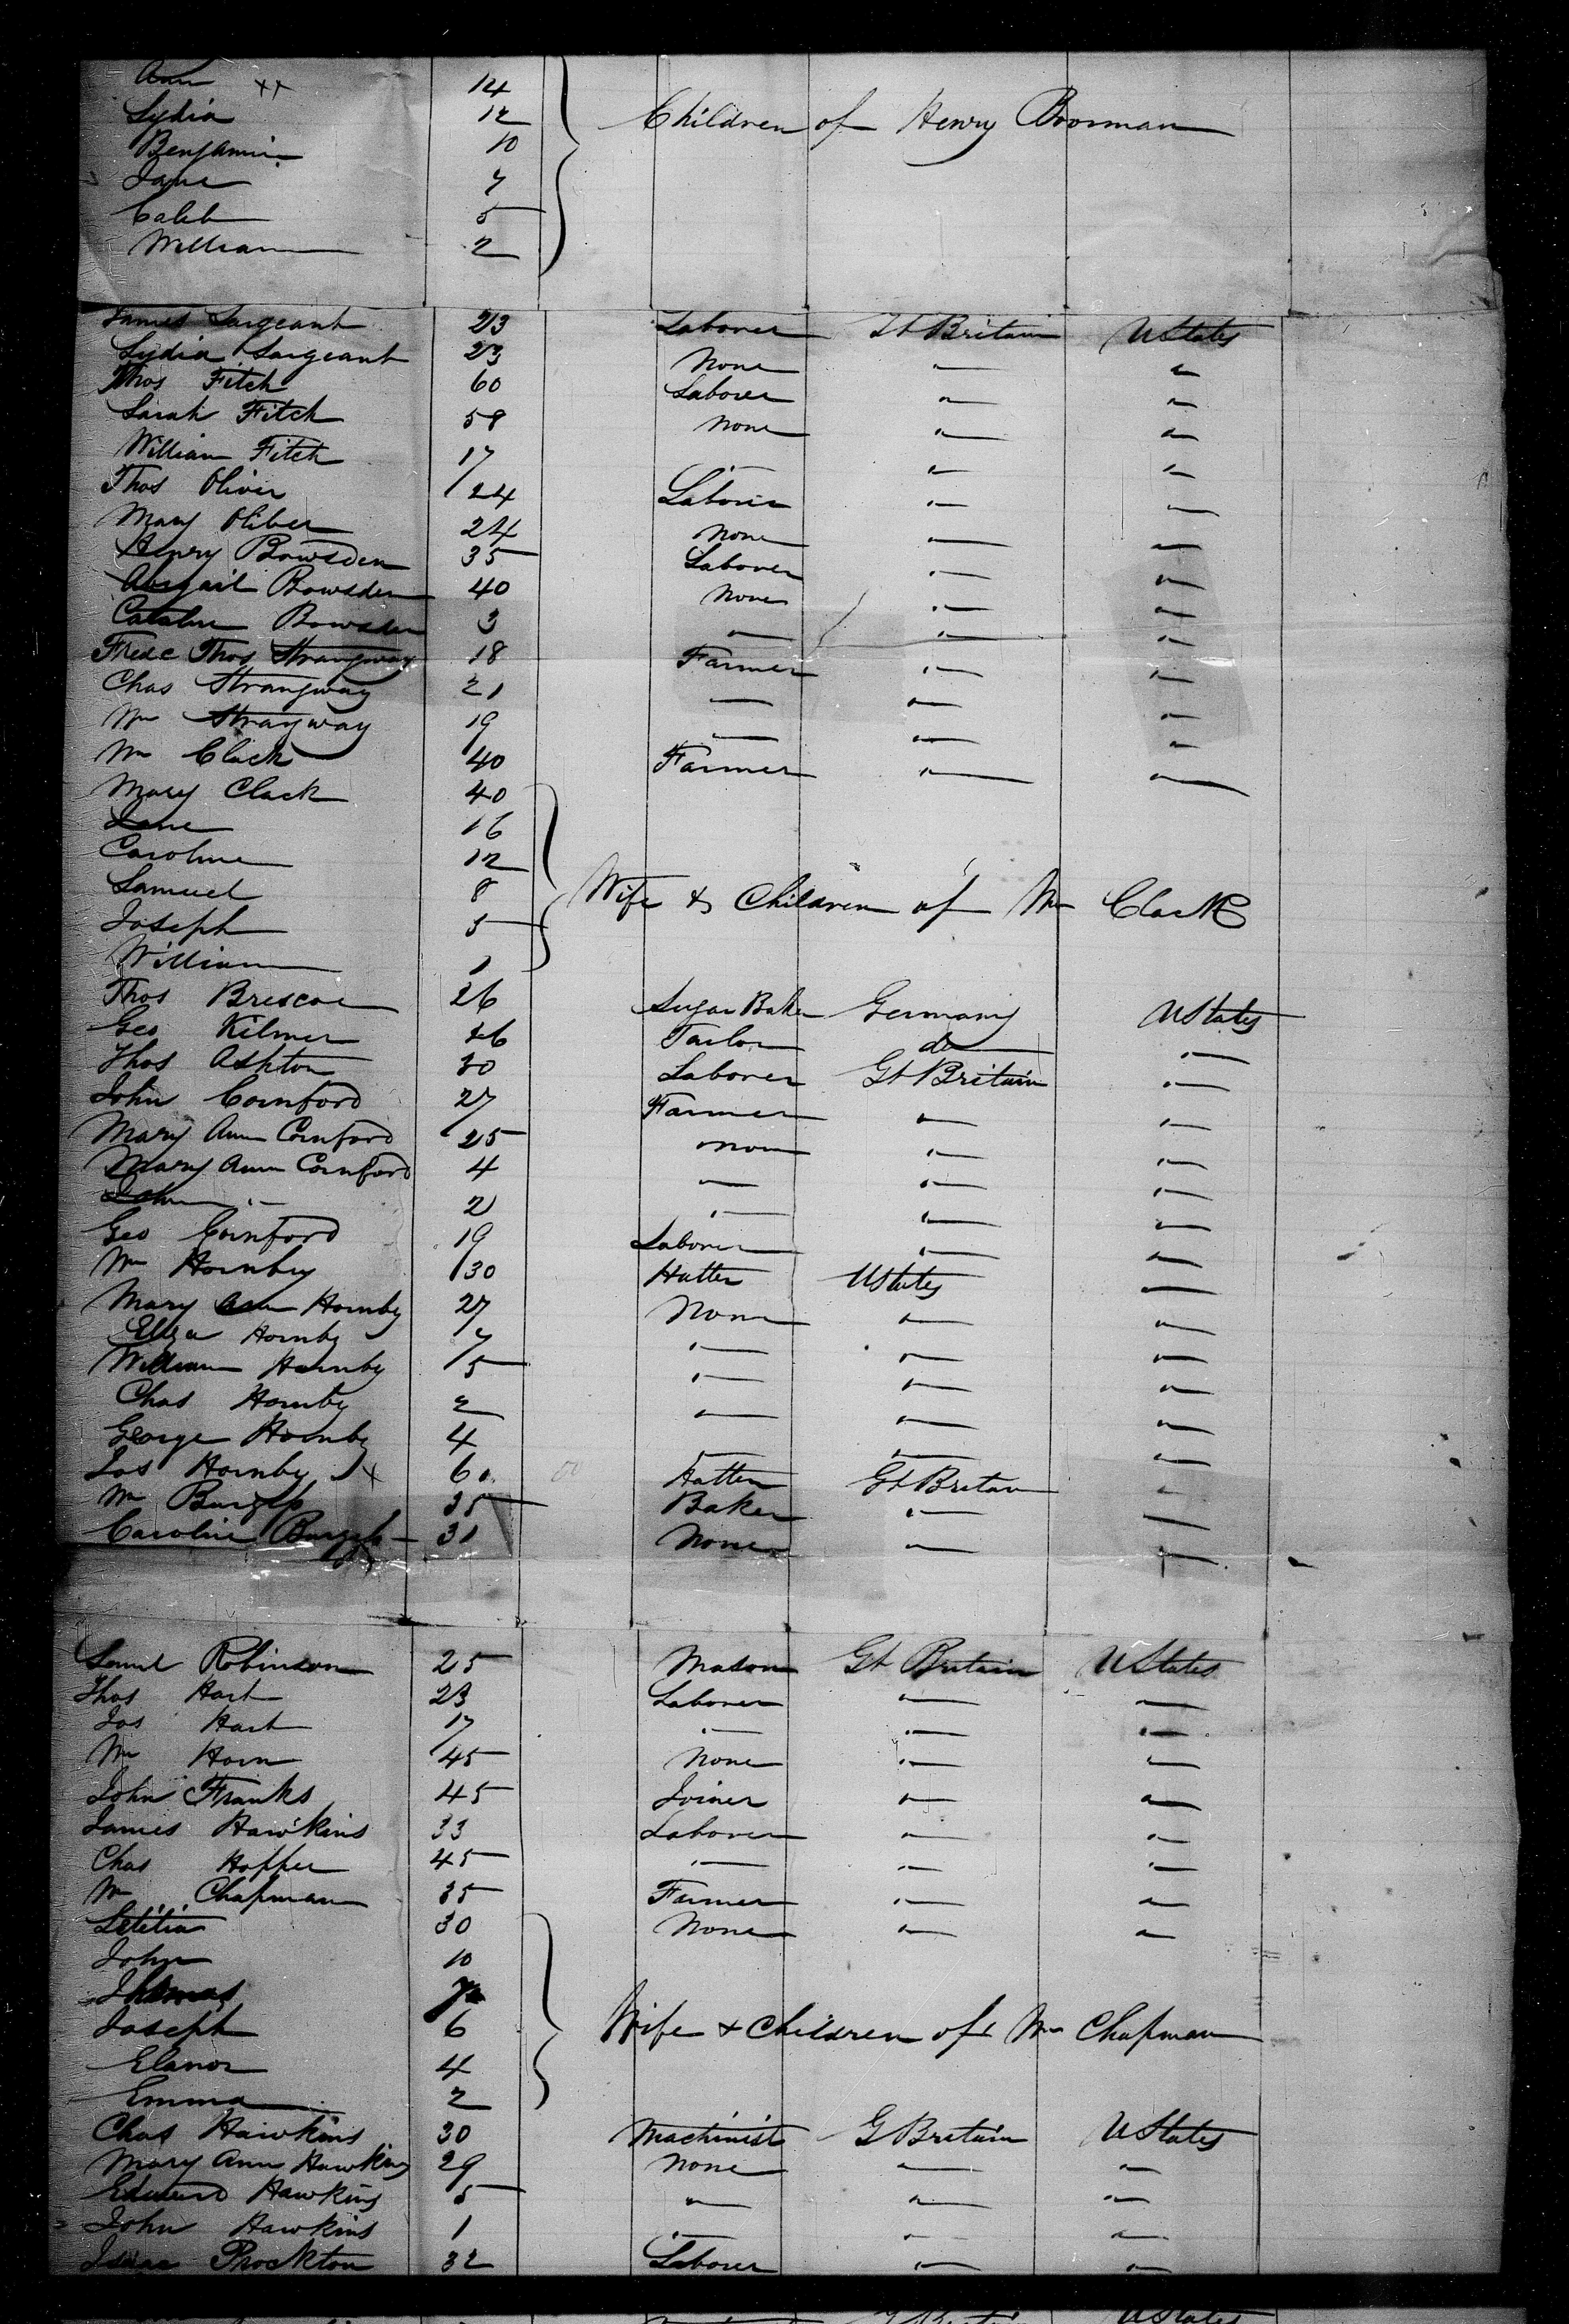 Ann 14
Lydia 12 Children of Henry Boorman
Benjamin 10
Jane 7
Caleb 5
William 2
James Sargeant 23 Laborer Gt Britain UStates
Lydia Sargeant 23 None " "
Thos Fitch 60 Laborer " "
Sarah Fitch 58 None " "
William Fitch 17 " " "
Thos Oliver 24 Laborer " "
Mary Oliver 24 None " "
Henry Bowsden 35 Laborer " "
Abigail Bowsden 40 None " "
Bowsden 3 " " "
Fredc Thos Strangway 18 Farmer " "
Chas Strangway 21 " " "
Wm Strangway 19 " " "
Wm Clack 40 Farmer " "
Mary Clack 40
Jane 16
Caroline 12
Samuel 8 Wife & Children of Wm Clack
Joseph 5
William 1
Thos Brescoe 26 Sugar Baker Germany UStates
Geo Kilmer 26 Tailor do "
Thos Ashton 30 Laborer Gt Britain "
John Cornford 27 Farmer " "
Mary Ann Cornford 25 None " "
Mary Ann Cornford 4 " " "
John " 2 " " "
Geo Cornford 19 Laborer " "
Wm Hornby 30 Hatter UStates "
Mary Ann Hornby 27 None " "
Eliza Hornby 7 " " "
William Hornby 5 " " "
Chas Hornby 2 " " "
George Hornby 4 " " "
Jos Hornby 60 Hatter Gt Britain "
Wm Burgess 35 Baker " "
Caroline Burgess 31 None " "
Saml Robinson 25 Mason Gt Britain UStates
Thos Hart 23 Laborer " "
Jos Hart 17 " " "
Wm Horn 45 None " "
John Franks 45 Joiner " "
James Hawkins 33 Laborer " "
Chas Hopper 45 " " "
Wm Chapman 35 Farmer " "
Letitia 30 None " "
John 10
Thomas
Joseph 6 Wife & Children of Wm Chapman
Elanor 4
Emma 2
Chas Hawkins 30 Machinist G Britain UStates
Mary Ann Hawkins 29 None " "
Edward Hawkins 5 " " "
John Hawkins 1 " " "
Isaac Prockton 32 Laborer " "